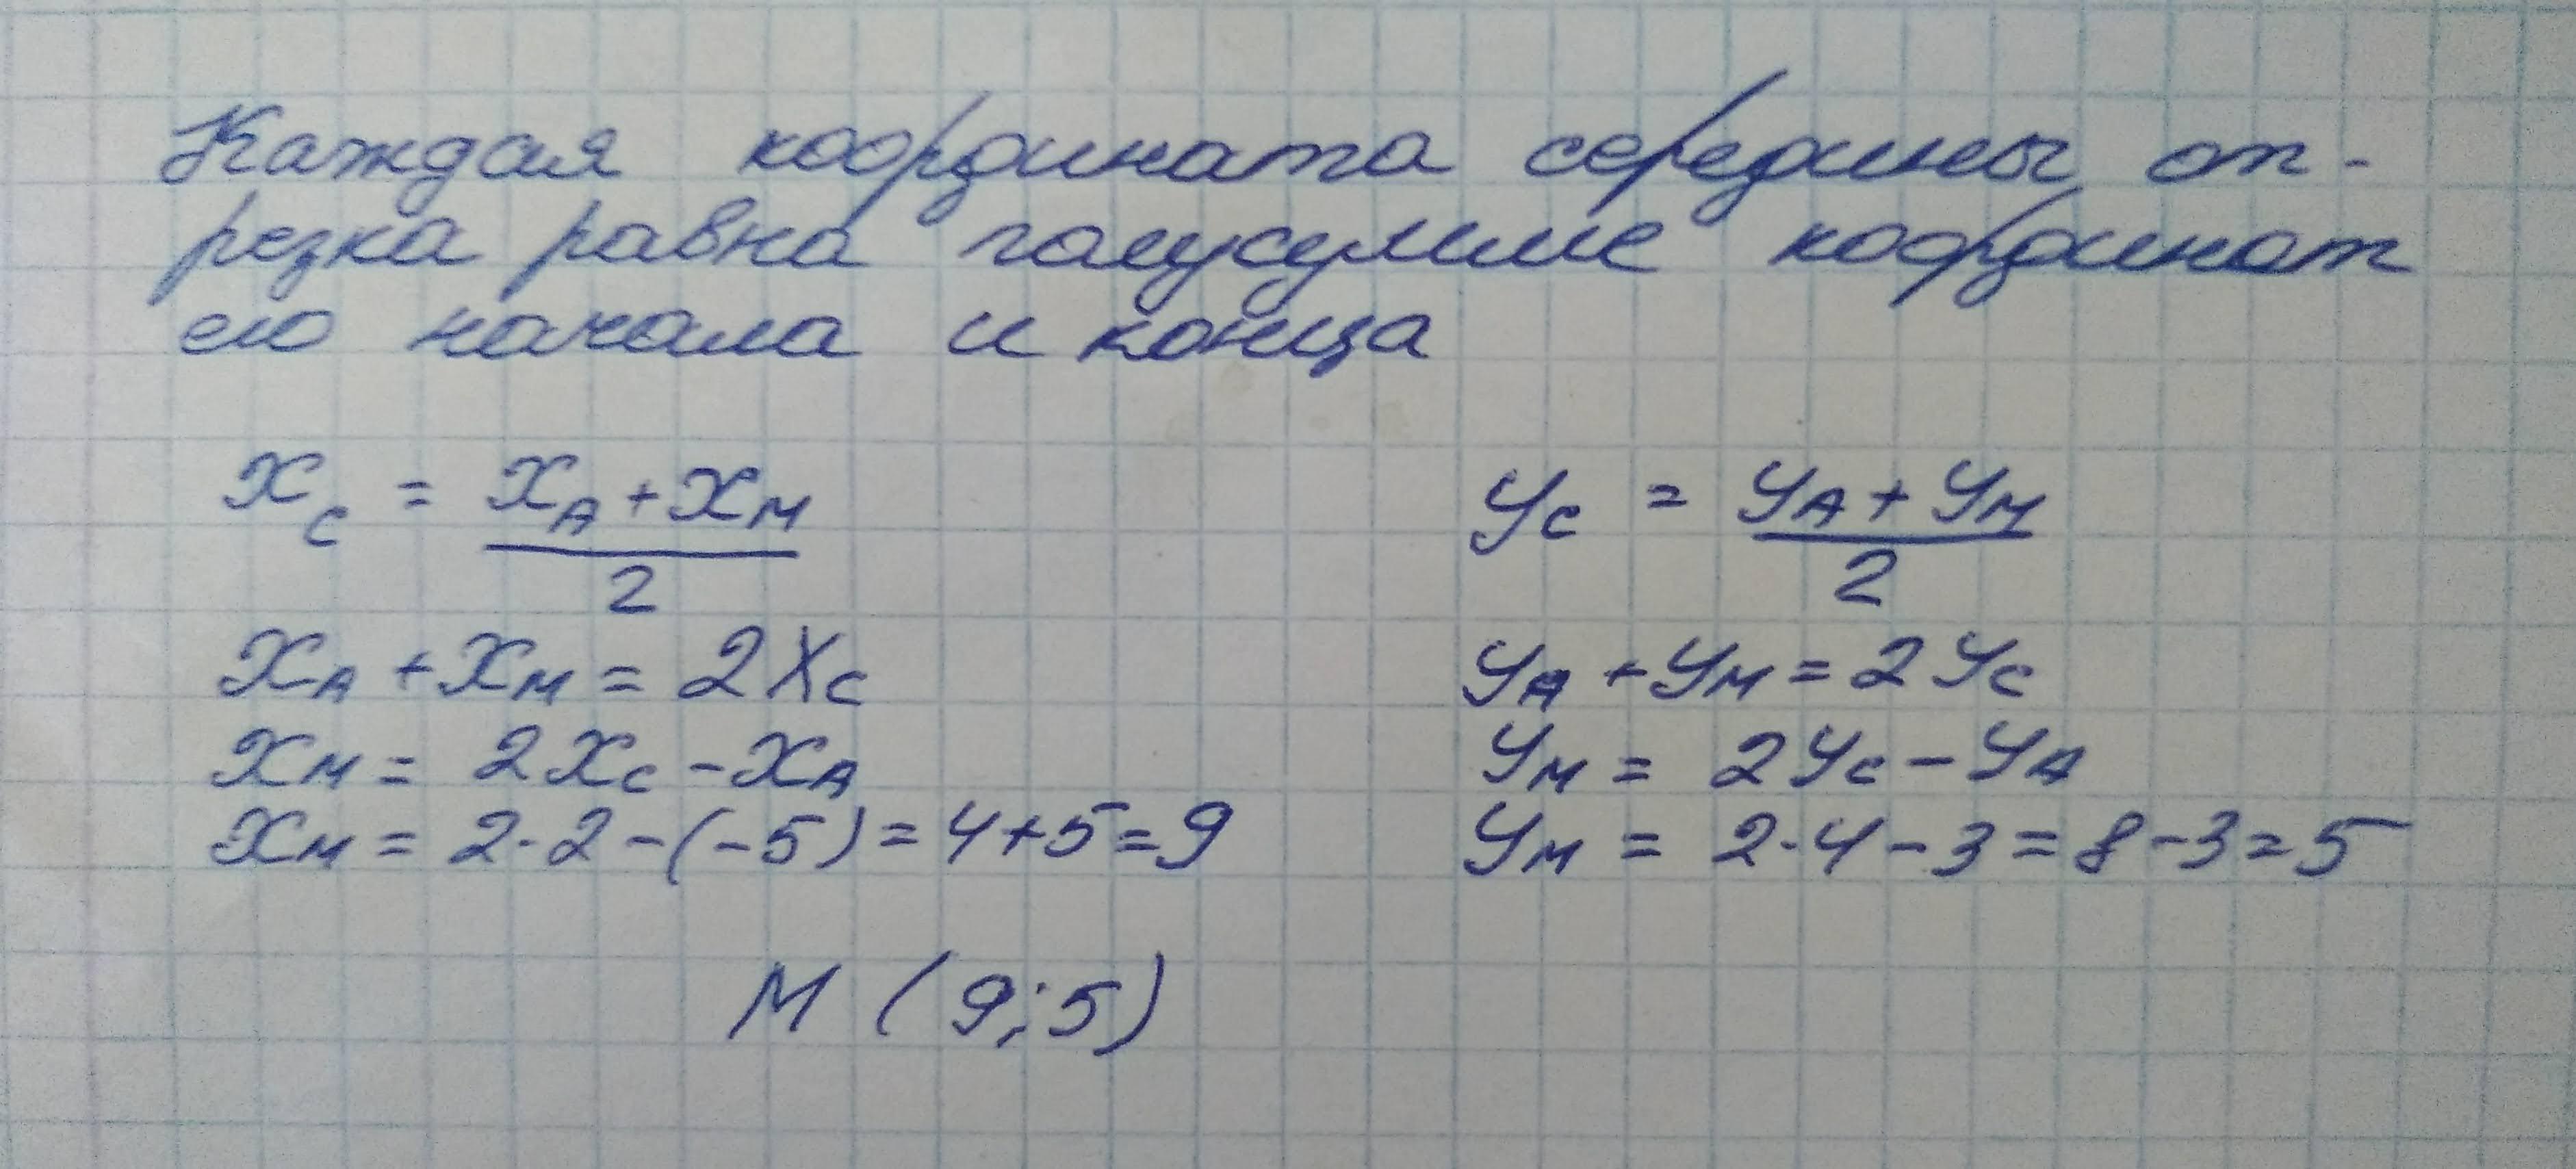 Каждая координата середины от-
резка равна полусумме координат
его начала и конца
x_C = (x_A + x_M)/2
y_C = (y_A + y_M)/2
x_A + x_M = 2x_C
y_A + y_M = 2y_C
x_M = 2x_C - x_A
y_M = 2y_C - y_A
x_M = 2·2-(-5) = 4+5=9
y_M = 2·4-3=8-3=5
M (9;5)